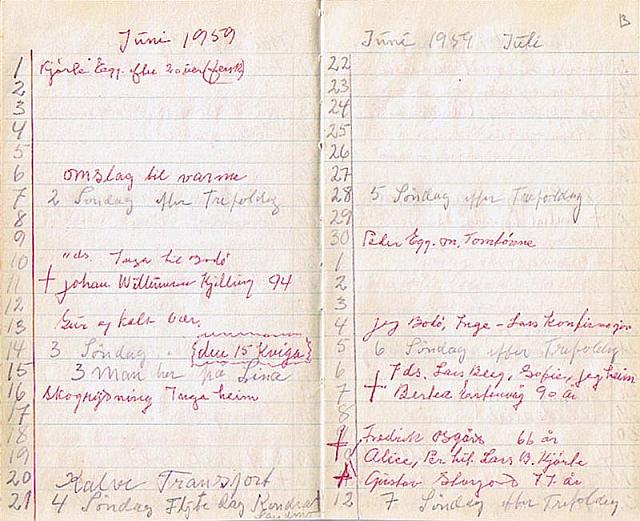 Juni 1959
1 Kjørte Egg. efter 20 iver (fersk)
2
3
4
5
6 omslag til varme
7 2 Søndag efter Trefoldig
8
9
10 "ds. Inga til Bodø
11 † Johan Kjelling 94
12
13 Sur og kalt vær
14 3 Søndag . {den 15 Kviga}
15 3 man her på Lina
16 Inga heim
17
18
19
20 Kalve Transport
21 4 Søndag Flyte dag
Juni 1959 Juli
B
22
23
24
25
26
27
28 5 Søndag efter Trefoldig
29
30 Peder Egg. m.
1
2
3
4 jeg Bodø, Inge - Lars Konfirmasjon
5 6 Søndag efter Trefoldig
6 7 ds. Lars Berg, Sofie, jeg heim
7 † Bertea 90 år
8
† Fredrik 66 år
Alice, Per hit. Lars B. Kjørte
† Gustav 77 år
12 7 Søndag efter Trefoldig